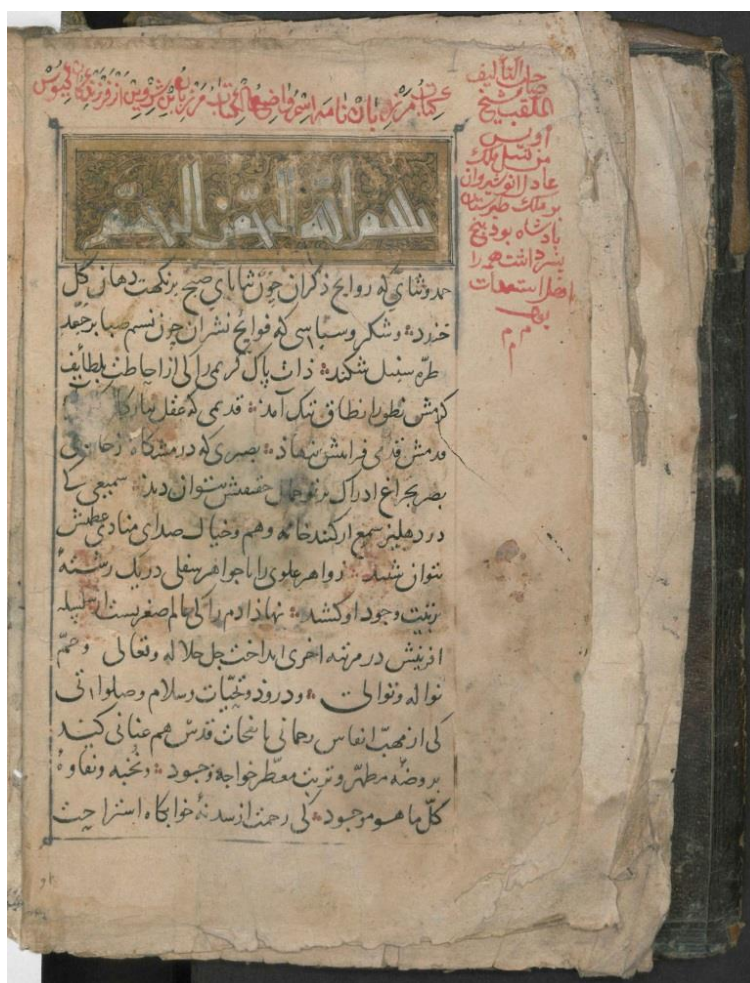 کتاب مرزبان نامه اسم واضع الکتاب مرزبان بن شروین از فرزندان کیوس
صاحب التألیف
الملقب بشیخ
اویس
من نسل ملک
عادل انوشیروان
بر ملک طبرستان
پادشاه بود پنج
پسر داشت همه را
بسم الله الرحمن الرحیم
حمد و ثنایی که روایح ذکر آن چون ثنایای صبح بر نکهت دهان کل
خندد و شکر و سپاسی که فوایح نشر آن چون نسیم صبا بر جعد
طره سنبل شکند ذات پاک کریمی را کی از احاطت بلطایف
کرمش نطق را نطاق تنک آمد قدیمی که عقل ببارکاه
قدمش قدمی فرا پیش ننهاذ بصیری که در مشکاة زجاجی
بصر بچراغ ادراک پرتو جمال حقیقتش نتوان دید سمیعی کی
در دهلیز سمع از کنند خانه وهم و خیال صدای منادی عظمتش
نتوان شنید زواهر علوی را با جواهر سفلی در یک رشتهٔ
ترتیب وجود او کشید نهاذ آدم را کی عالم صغریست از سلسله
آفرینش در مرتبه اخری انداخت جل جلاله و تعالی و عم
نواله و توالی و درود و تحیات و سلام و صلواتی
کی از مهب انفاس رحمانی با نفحات قدس هم عنانی کند
بر روضه مطهر و تربت معطر خواجه وجود و نخبه و نقاوهٔ
کل ما هو موجود کی رحمت از سدنهٔ خوابکاه استراحت